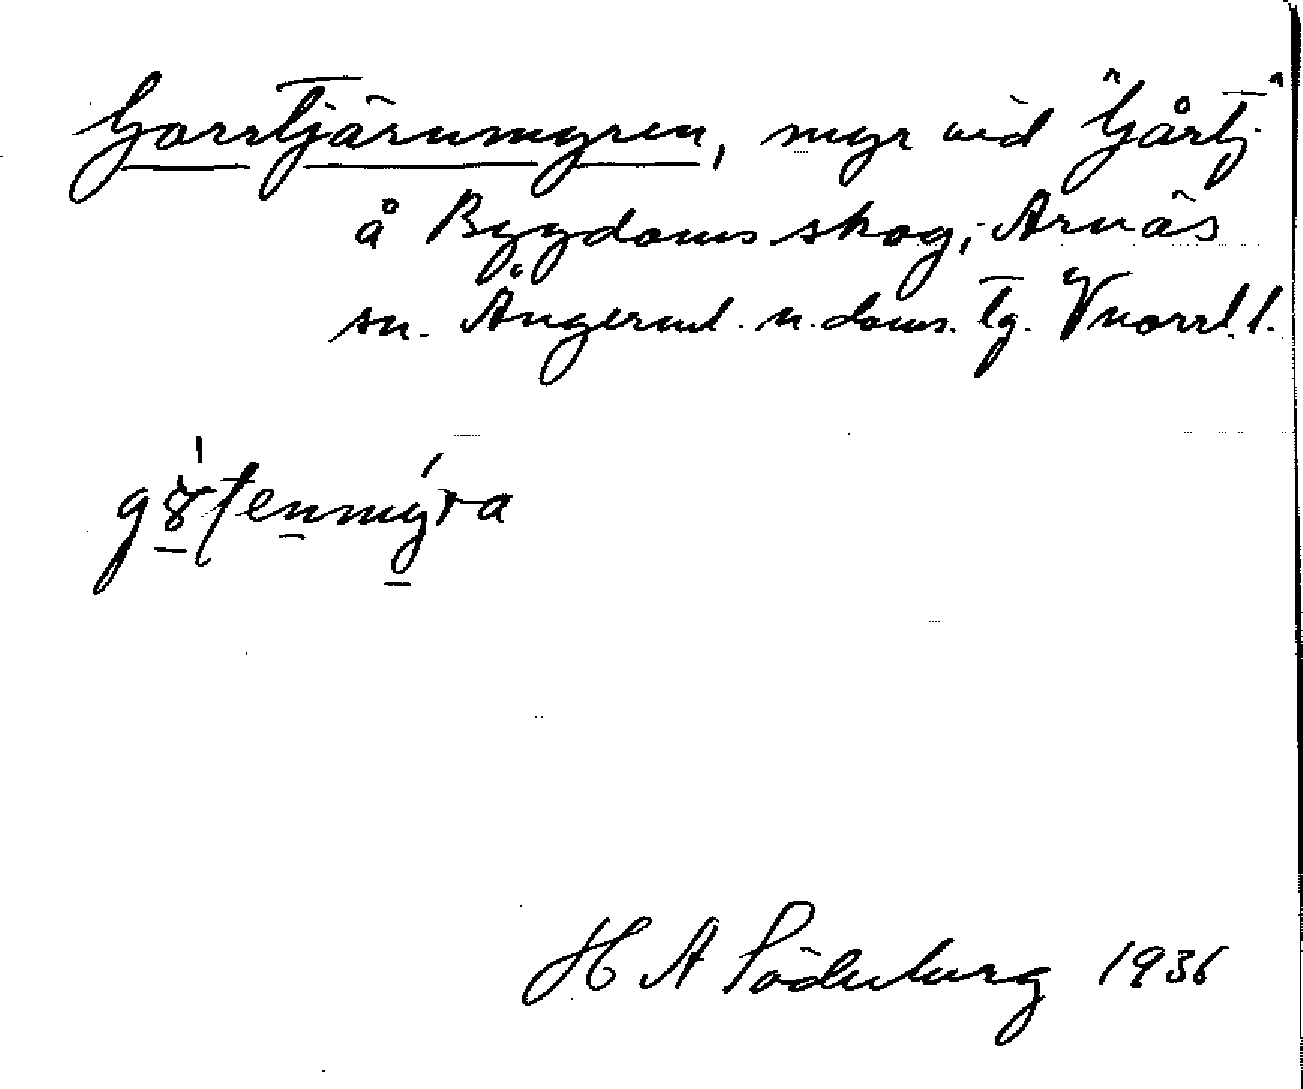 Gorrtjärnmyren, myr vid "Gårtj"
å Bygdoms skog, Arnäs
sn. Ångerml. n. doms. tg. Vnorrl. l.
H A Söderberg 1936